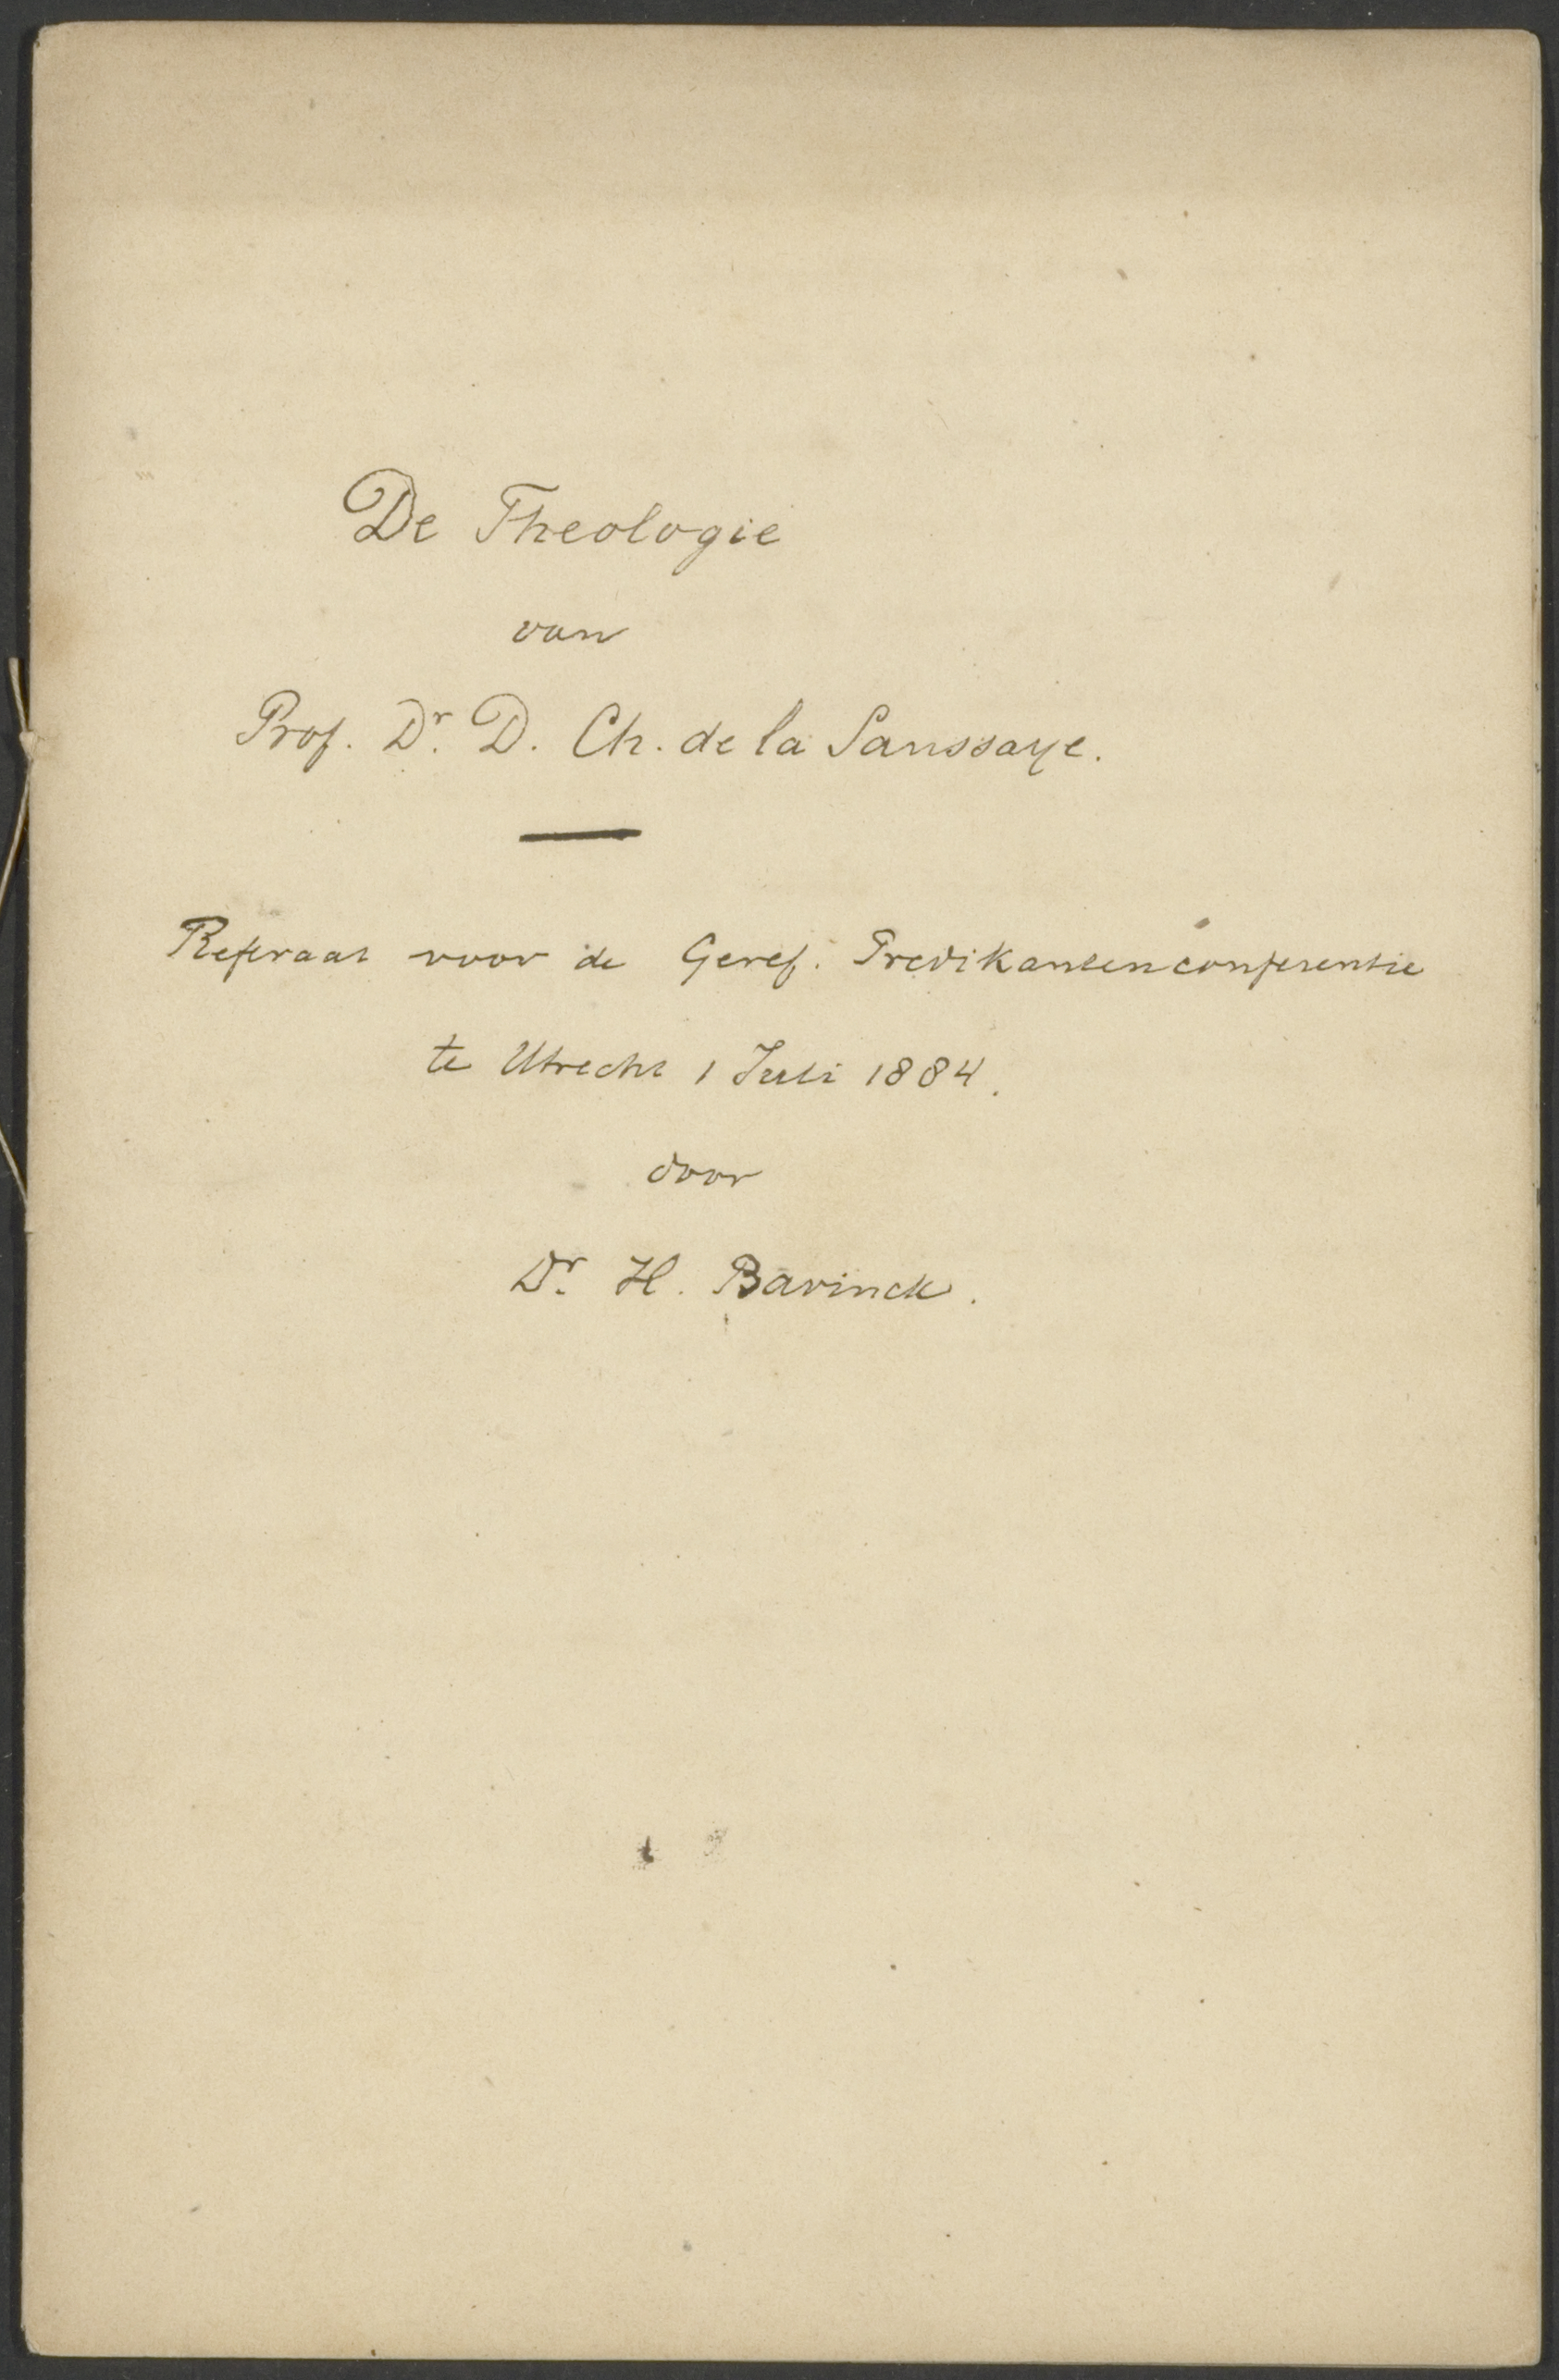 De Theologie
van
Prof. Dr. D. Ch. de la Saussaye.
Referaat voor de Geref. Predikantenconferentie
te Utrecht 1 Juli 1884.
door
Dr. H. Bavinck.